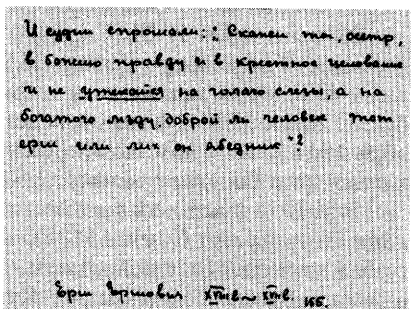 И судии спрошали: "Скажи ты, осетр,
в божию правду и в крестное целование
и не утешайся на голаго слезы, а на
богатого мзду, доброй ли человек тот
ерш или лих он ябедник"?
Ерш Ершович XVIIв XVIIIв.